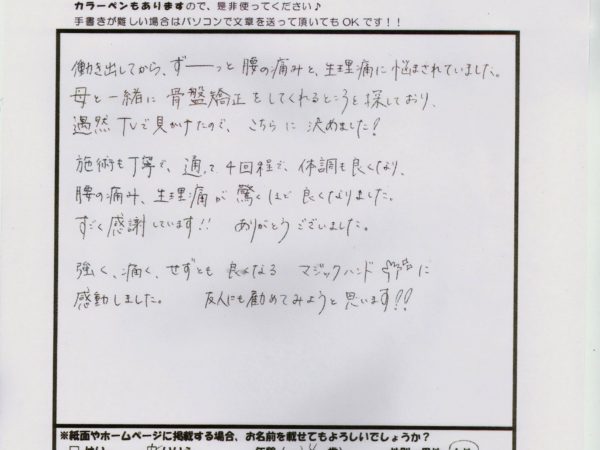 カラーペンもありますので、是非使ってください♪
手書きが難しい場合はパソコンで文章を送って頂いてもOKです！！
働き出してから、ずーーっと 腰の痛みと、生理痛に悩まされていました。
母と一緒に 骨盤矯正をしてくれるところを探しており、
偶然TVで見かけたので、こちらに決めました！
施術も丁寧で、通って4回程で、体調も良くなり、
腰の痛み、生理痛が 驚くほど 良くなりました。
すごく感謝しています!! ありがとうございました。
強く、痛く、せずとも 良くなる マジックハンド に
感動しました。 友人にも勧めてみようと思います!!
※紙面やホームページに掲載する場合、お名前を載せてもよろしいでしょうか？